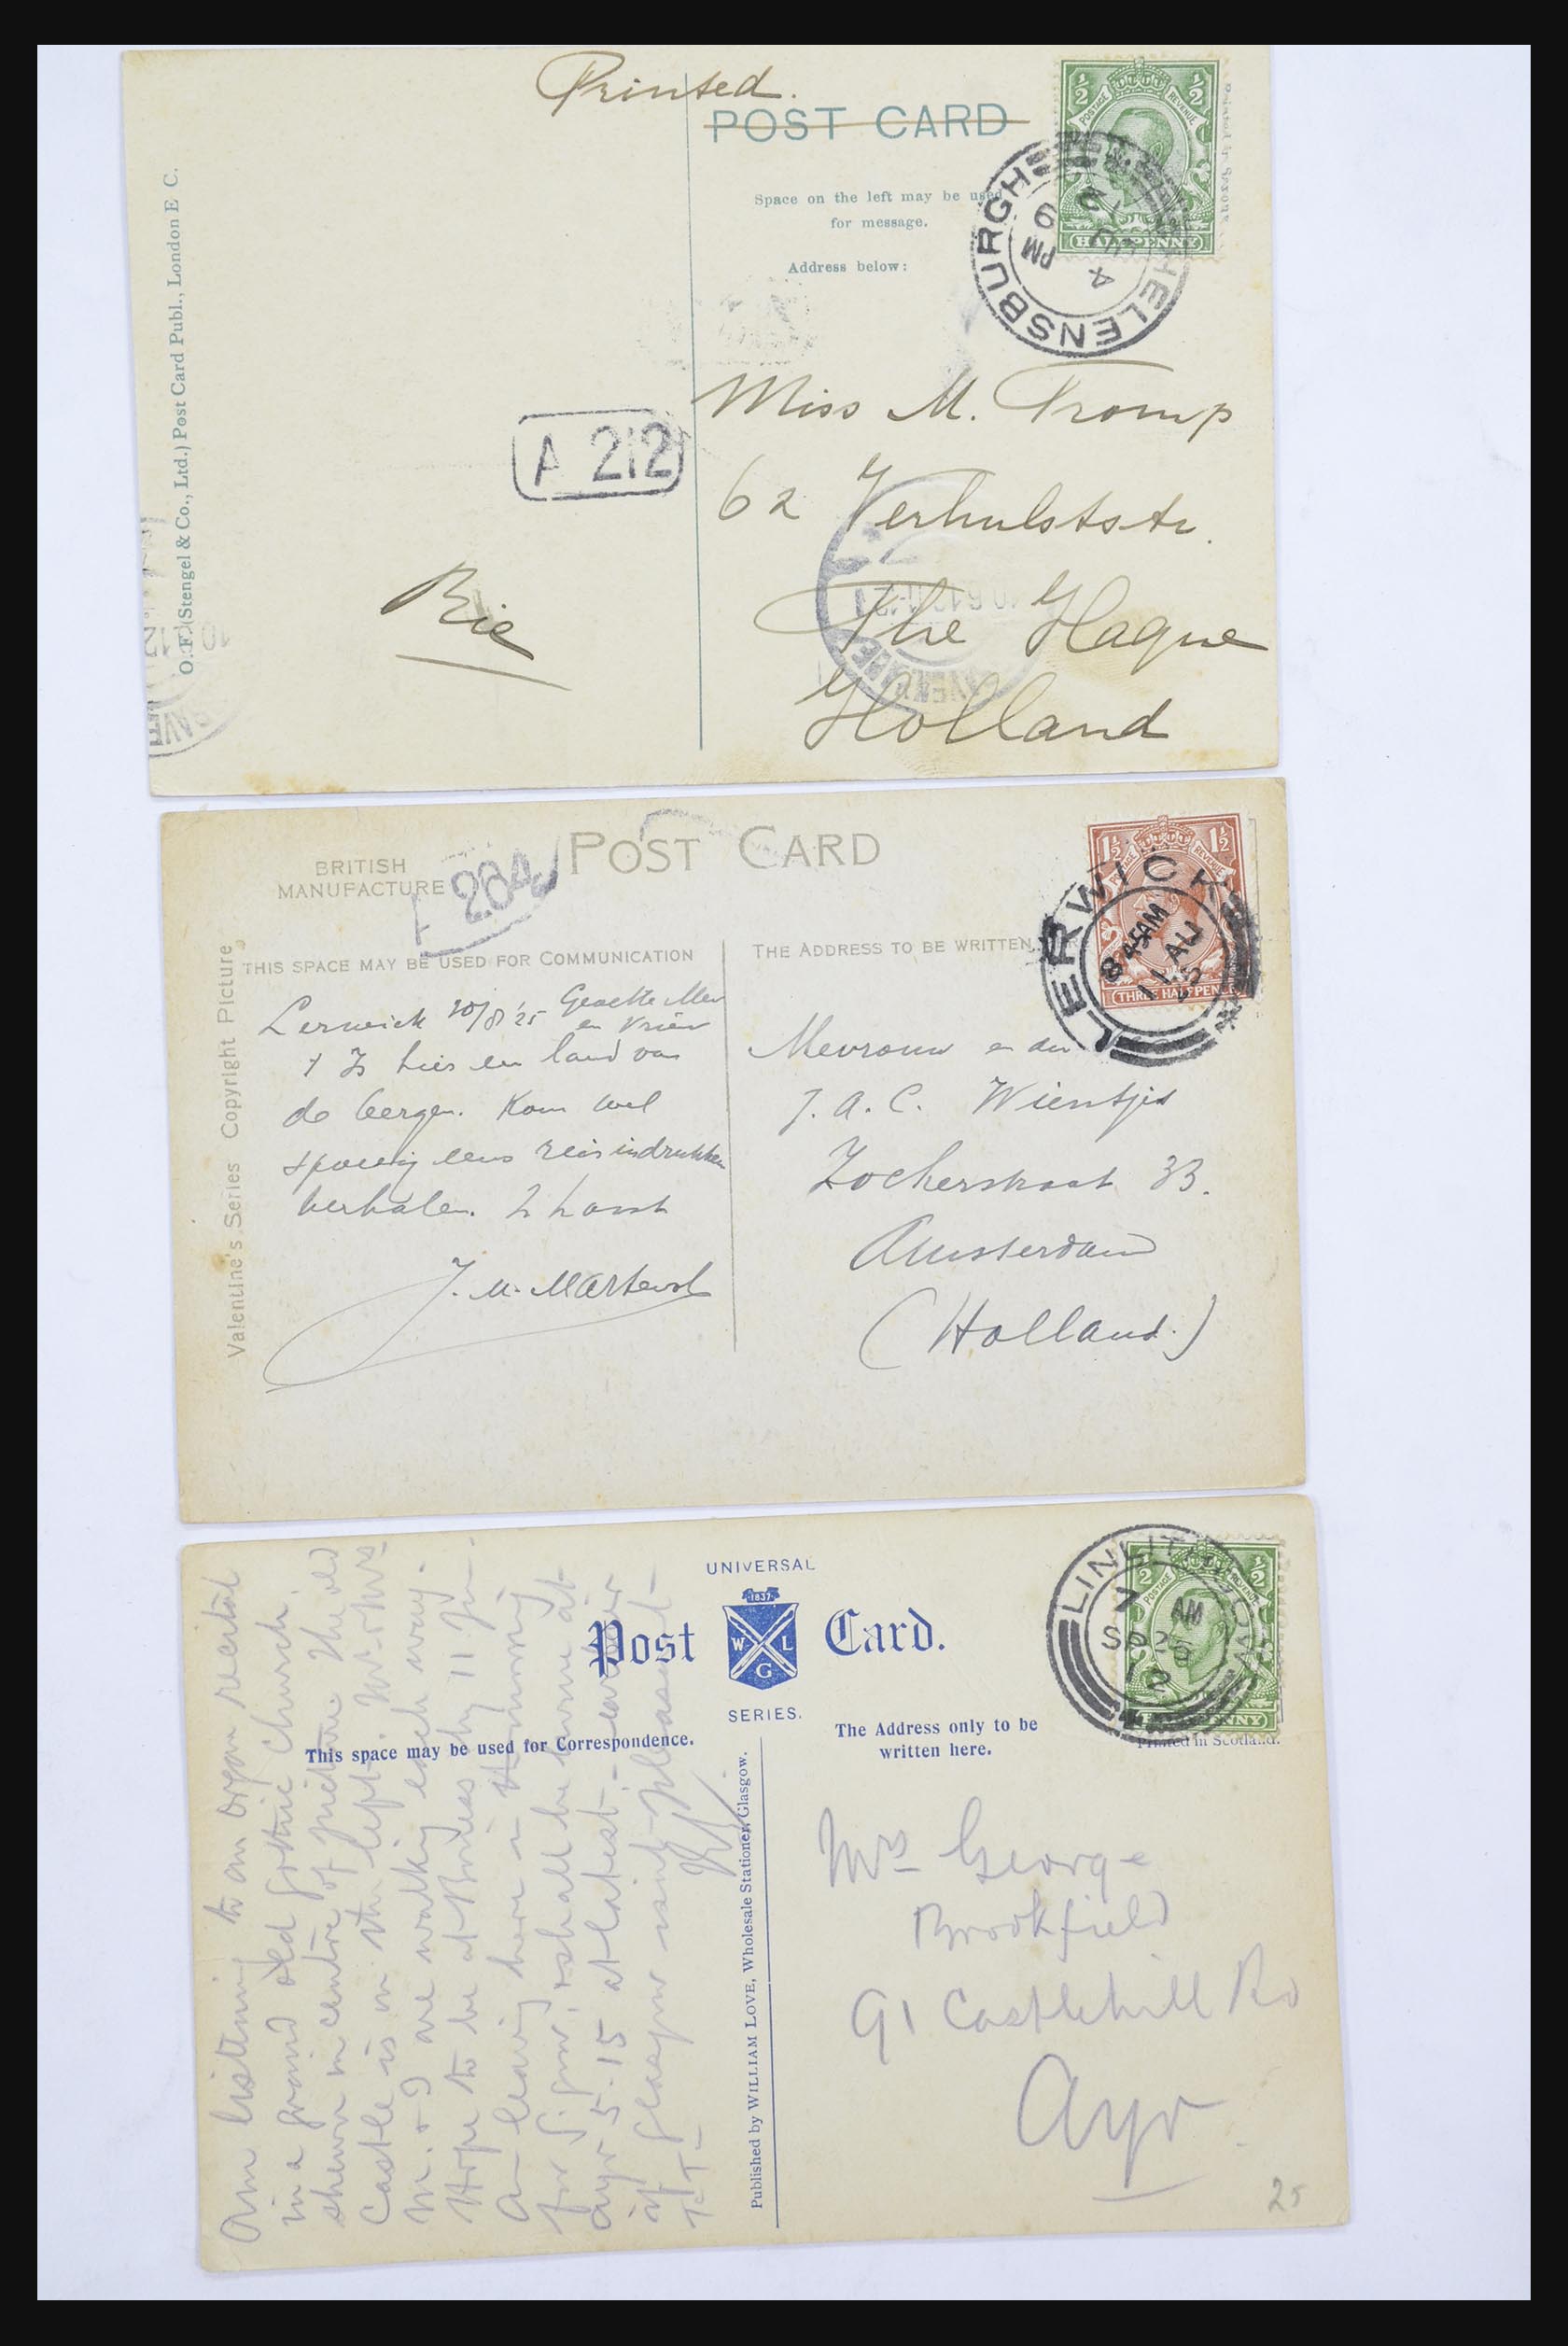 Printed.
POST CARD
Space on the left may be used
for message.
Address below:
½ ½
POSTAGE REVENUE
HALFPENNY
HELENSBURGH
9 PM
4 JU
12
Miss M. Tromp
62 Verhulststr.
The Hague
Holland
A 212
Rie
O. F. (Stengel & Co., Ltd.) Post Card Publ., London E C.
BRITISH
MANUFACTURE
POST CARD
204
THIS SPACE MAY BE USED FOR COMMUNICATION
THE ADDRESS TO BE WRITTEN
1½ 1½
THREE HALFPENCE
LERWICK
8 45AM
11 AU
25
Valentine's Series Copyright Picture
Lerwick 10/8/25 Geachte Mevr
en
is hier een land van
de bergen. Kom wel
spoedig eens reisindrukken
verhalen.
Mevrouw en den
J. A. C. Wientjes
Zocherstraat 33.
Amsterdam
(Holland.)
UNIVERSAL
Post Card.
1837
W L
G
SERIES.
This space may be used for Correspondence.
The Address only to be
written here.
LINLITHGOW
7 AM
SP 25
12
½ ½
POSTAGE REVENUE
Printed in Scotland.
Published by WILLIAM LOVE, Wholesale Stationer, Glasgow.
Am listening to an organ recital
in a grand old Gothic church
shewn in centre of picture. The old
Castle is on the left. Mr &
M. & I are walking each way.
Hope to be at by 11 pm.
Am leaving here in morning
for & shall be home at
Ayr 5.15 at latest - earlier
if Glasgow isnt pleasant -
Mrs George
Brookfield
91 Castlehill Rd
Ayr
25